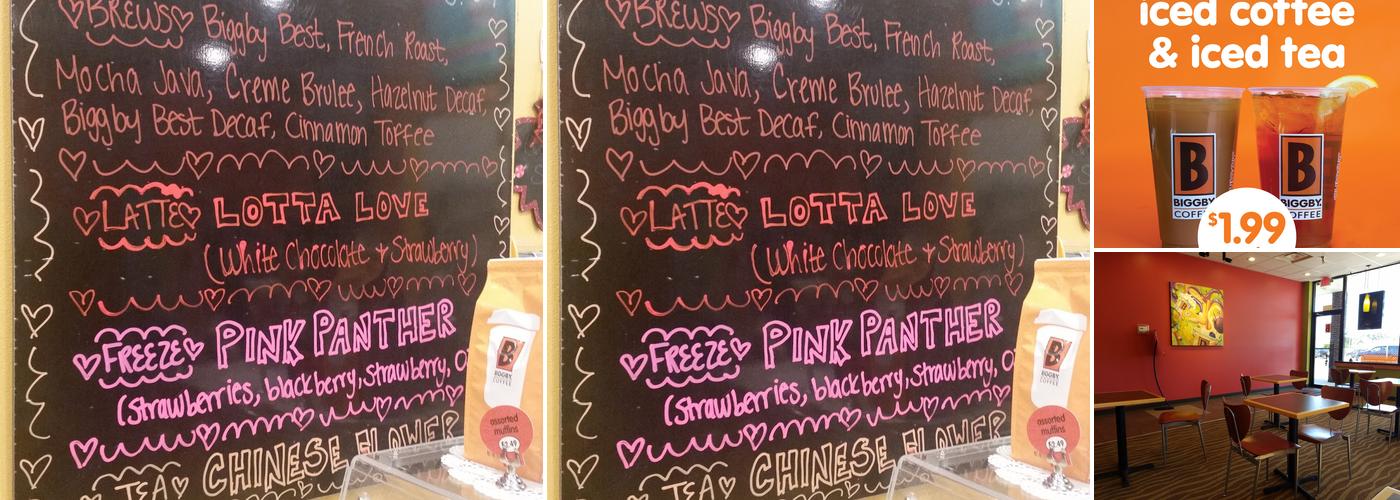 BREWS Biggby Best, French Roast,
Mocha Java, Creme Brulee, Hazelnut Decaf,
Biggby Best Decaf, Cinnamon Toffee
LATTE LOTTA LOVE
(White Chocolate + Strawberry)
FREEZE PINK PANTHER
(strawberries, blackberry, strawberry,
TEA CHINESE FLOWER
B
BIGGBY
COFFEE
assorted
muffins
$2.49
BREWS Biggby Best, French Roast,
Mocha Java, Creme Brulee, Hazelnut Decaf,
Biggby Best Decaf, Cinnamon Toffee
LATTE LOTTA LOVE
(White Chocolate + Strawberry)
FREEZE PINK PANTHER
(strawberries, blackberry, strawberry,
TEA CHINESE FLOWER
B
BIGGBY
COFFEE
assorted
muffins
$2.49
iced coffee
& iced tea
B
BIGGBY
COFF
B
BIGGBY
OFFEE
$1.99